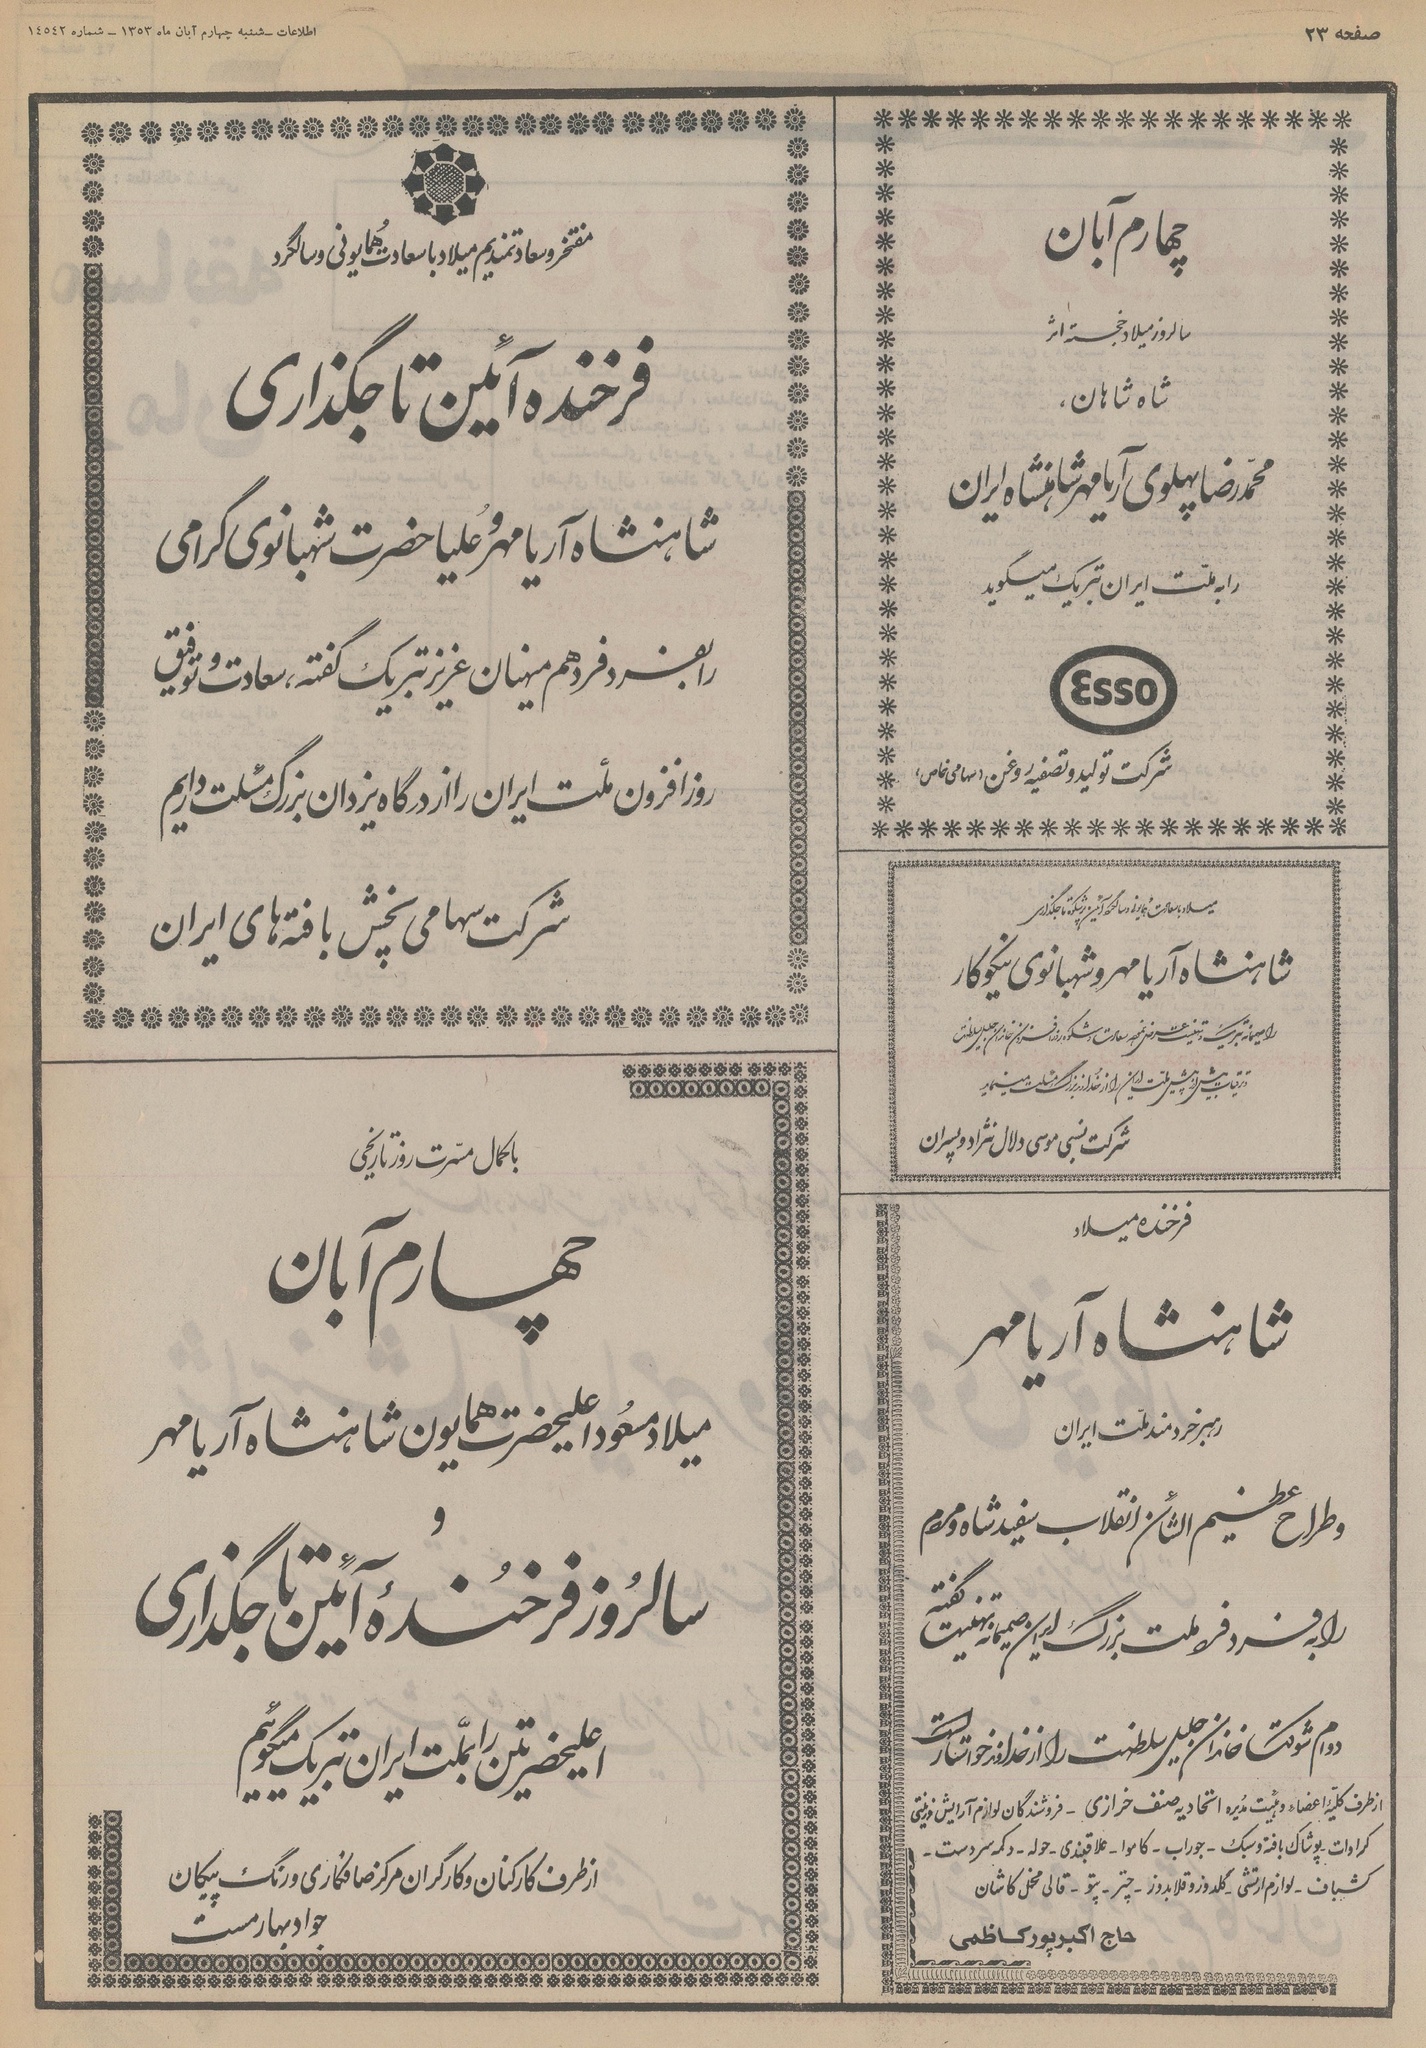 صفحه ۲۳
اطلاعات ـ شنبه چهارم آبان ماه ۱۳۵۳ ـ شماره ۱۴۵۴۲
چهارم آبان
سالروز میلاد خجسته اثر
شاه شاهان،
محمدرضا پهلوی آریامهر شاهنشاه ایران
را به ملّت ایران تبریک میگوید
Esso
شرکت تولید و تصفیه روغن (سهامی خاص)
مفتخر و سعادتمندیم میلاد با سعادت همایونی و سالگرد
فرخنده آئین تاجگذاری
شاهنشاه آریامهر و علیاحضرت شهبانوی گرامی
را بفرد فرد هم میهنان عزیز تبریک گفته، سعادت و توفیق
روزافزون ملت ایران را از درگاه یزدان بزرگ مسئلت داریم
شرکت سهامی پخش بافته های ایران
میلاد با سعادت همایونی و سالگرد آئین پرشکوه تاجگذاری
شاهنشاه آریامهر و شهبانوی نیکوکار
را صمیمانه تبریک و تهنیت عرض نموده سعادت و شکوه روزافزون خاندان جلیل سلطنت
و ترقیات بیش از پیش ملت ایران را از خداوند بزرگ مسئلت مینماید
شرکت نسبی موسی دلال نژاد و پسران
فرخنده میلاد
شاهنشاه آریامهر
رهبر خردمند ملّت ایران
و طراح عظیم الشأن انقلاب سفید شاه و مردم
را به فرد فرد ملت بزرگ ایران صمیمانه تهنیت گفته
دوام شوکت خاندان جلیل سلطنت را از خداوند خواستار است
از طرف کلیّه اعضاء و هیئت مدیره اتحادیه صنف خرازی ـ فروشندگان لوازم آرایش و زینتی
کراوات ـ پوشاک بافته و سبک ـ جوراب ـ کاموا ـ علاقبندی ـ حوله ـ دکمه سردست ـ
کشباف ـ لوازم ارتشی ـ گلدوز و قلابدوز ـ چتر ـ پتو ـ قالی مخمل کاشان
حاج اکبر پور کاظمی
با کمال مسّرت روز تاریخی
چهارم آبان
میلاد مسعود اعلیحضرت همایون شاهنشاه آریامهر
و
سالروز فرخندهٔ آئین تاجگذاری
اعلیحضرتین را بملّت ایران تبریک میگوئیم
از طرف کارکنان و کارگران مرکز صافکاری و رنگ پیکان
جواد بهار مست